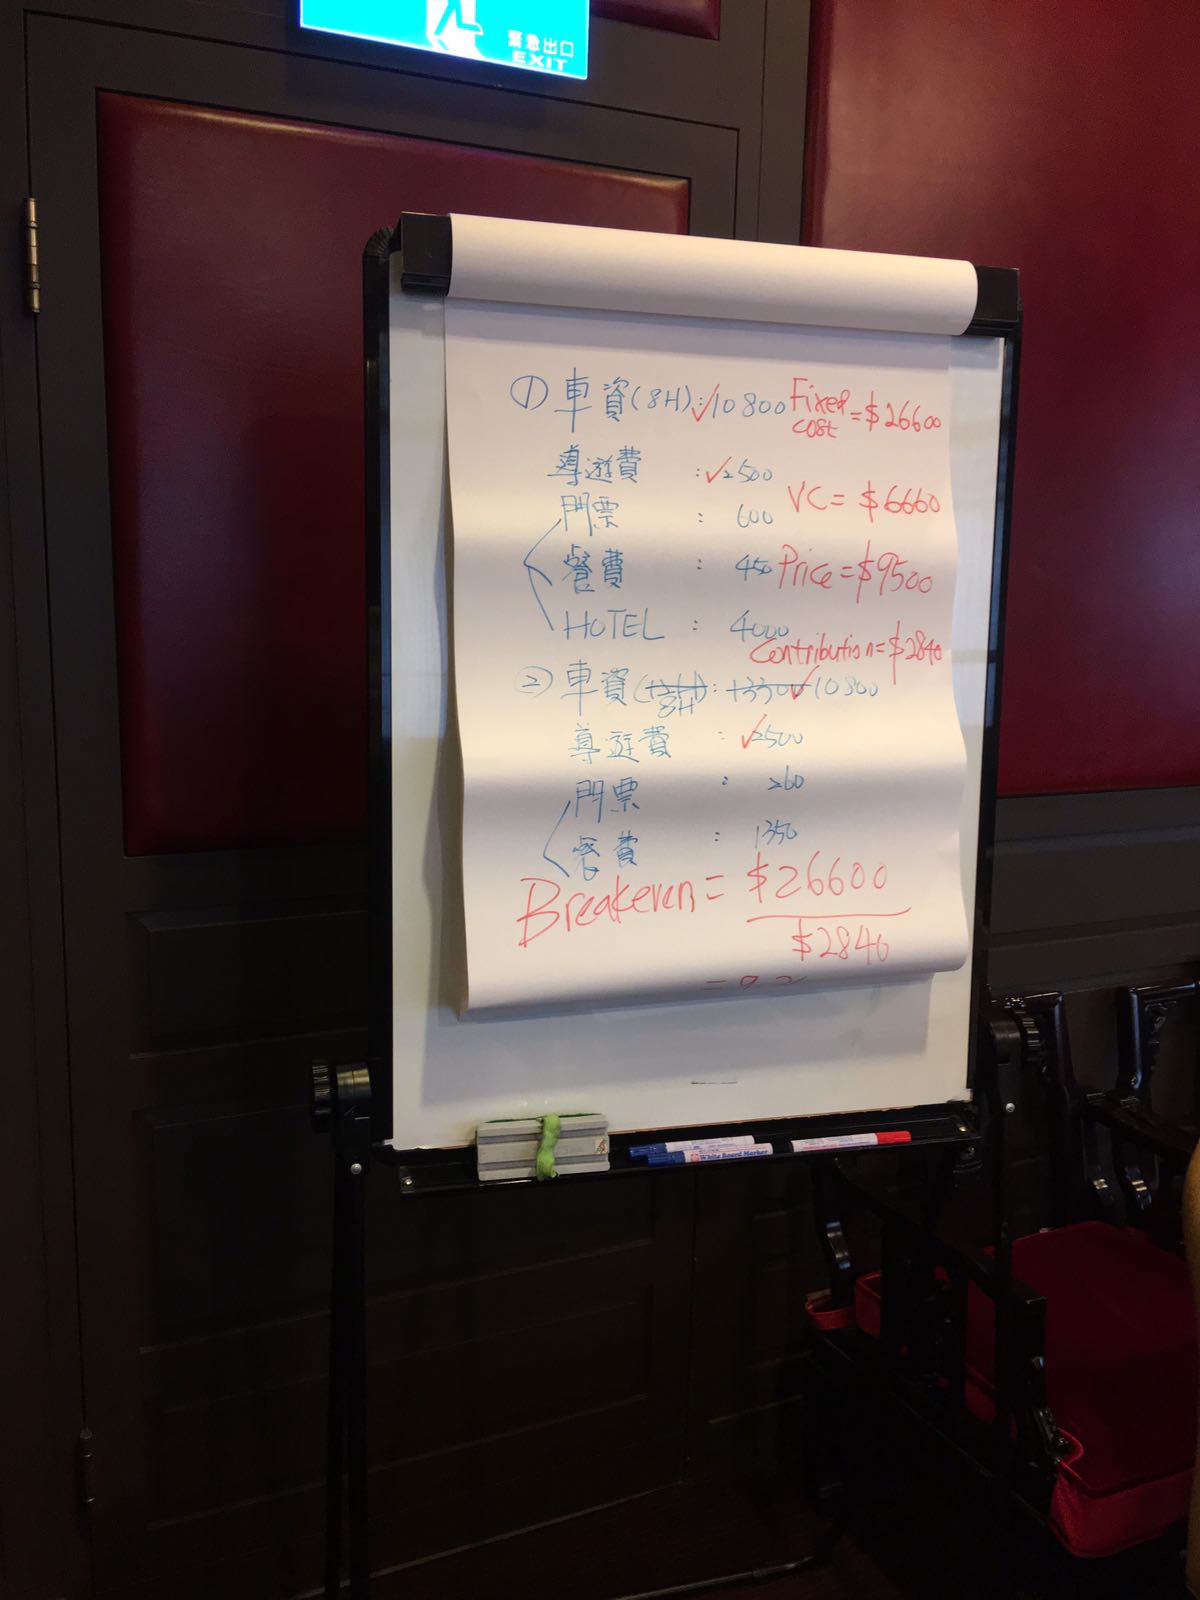 緊急出口
EXIT
① 車資(8H): ✓10800 Fixed cost = $26600
導遊費 : ✓2500
門票 : 600 VC = $6660
餐費 : 450 Price = $9500
HOTEL : 4000
Contribution = $2840
② 車資(12H 8H): 13300 ✓10800
導遊費 : ✓2500
門票 : 260
餐費 : 1350
Breakeven = $26600
$2840
White Board Marker